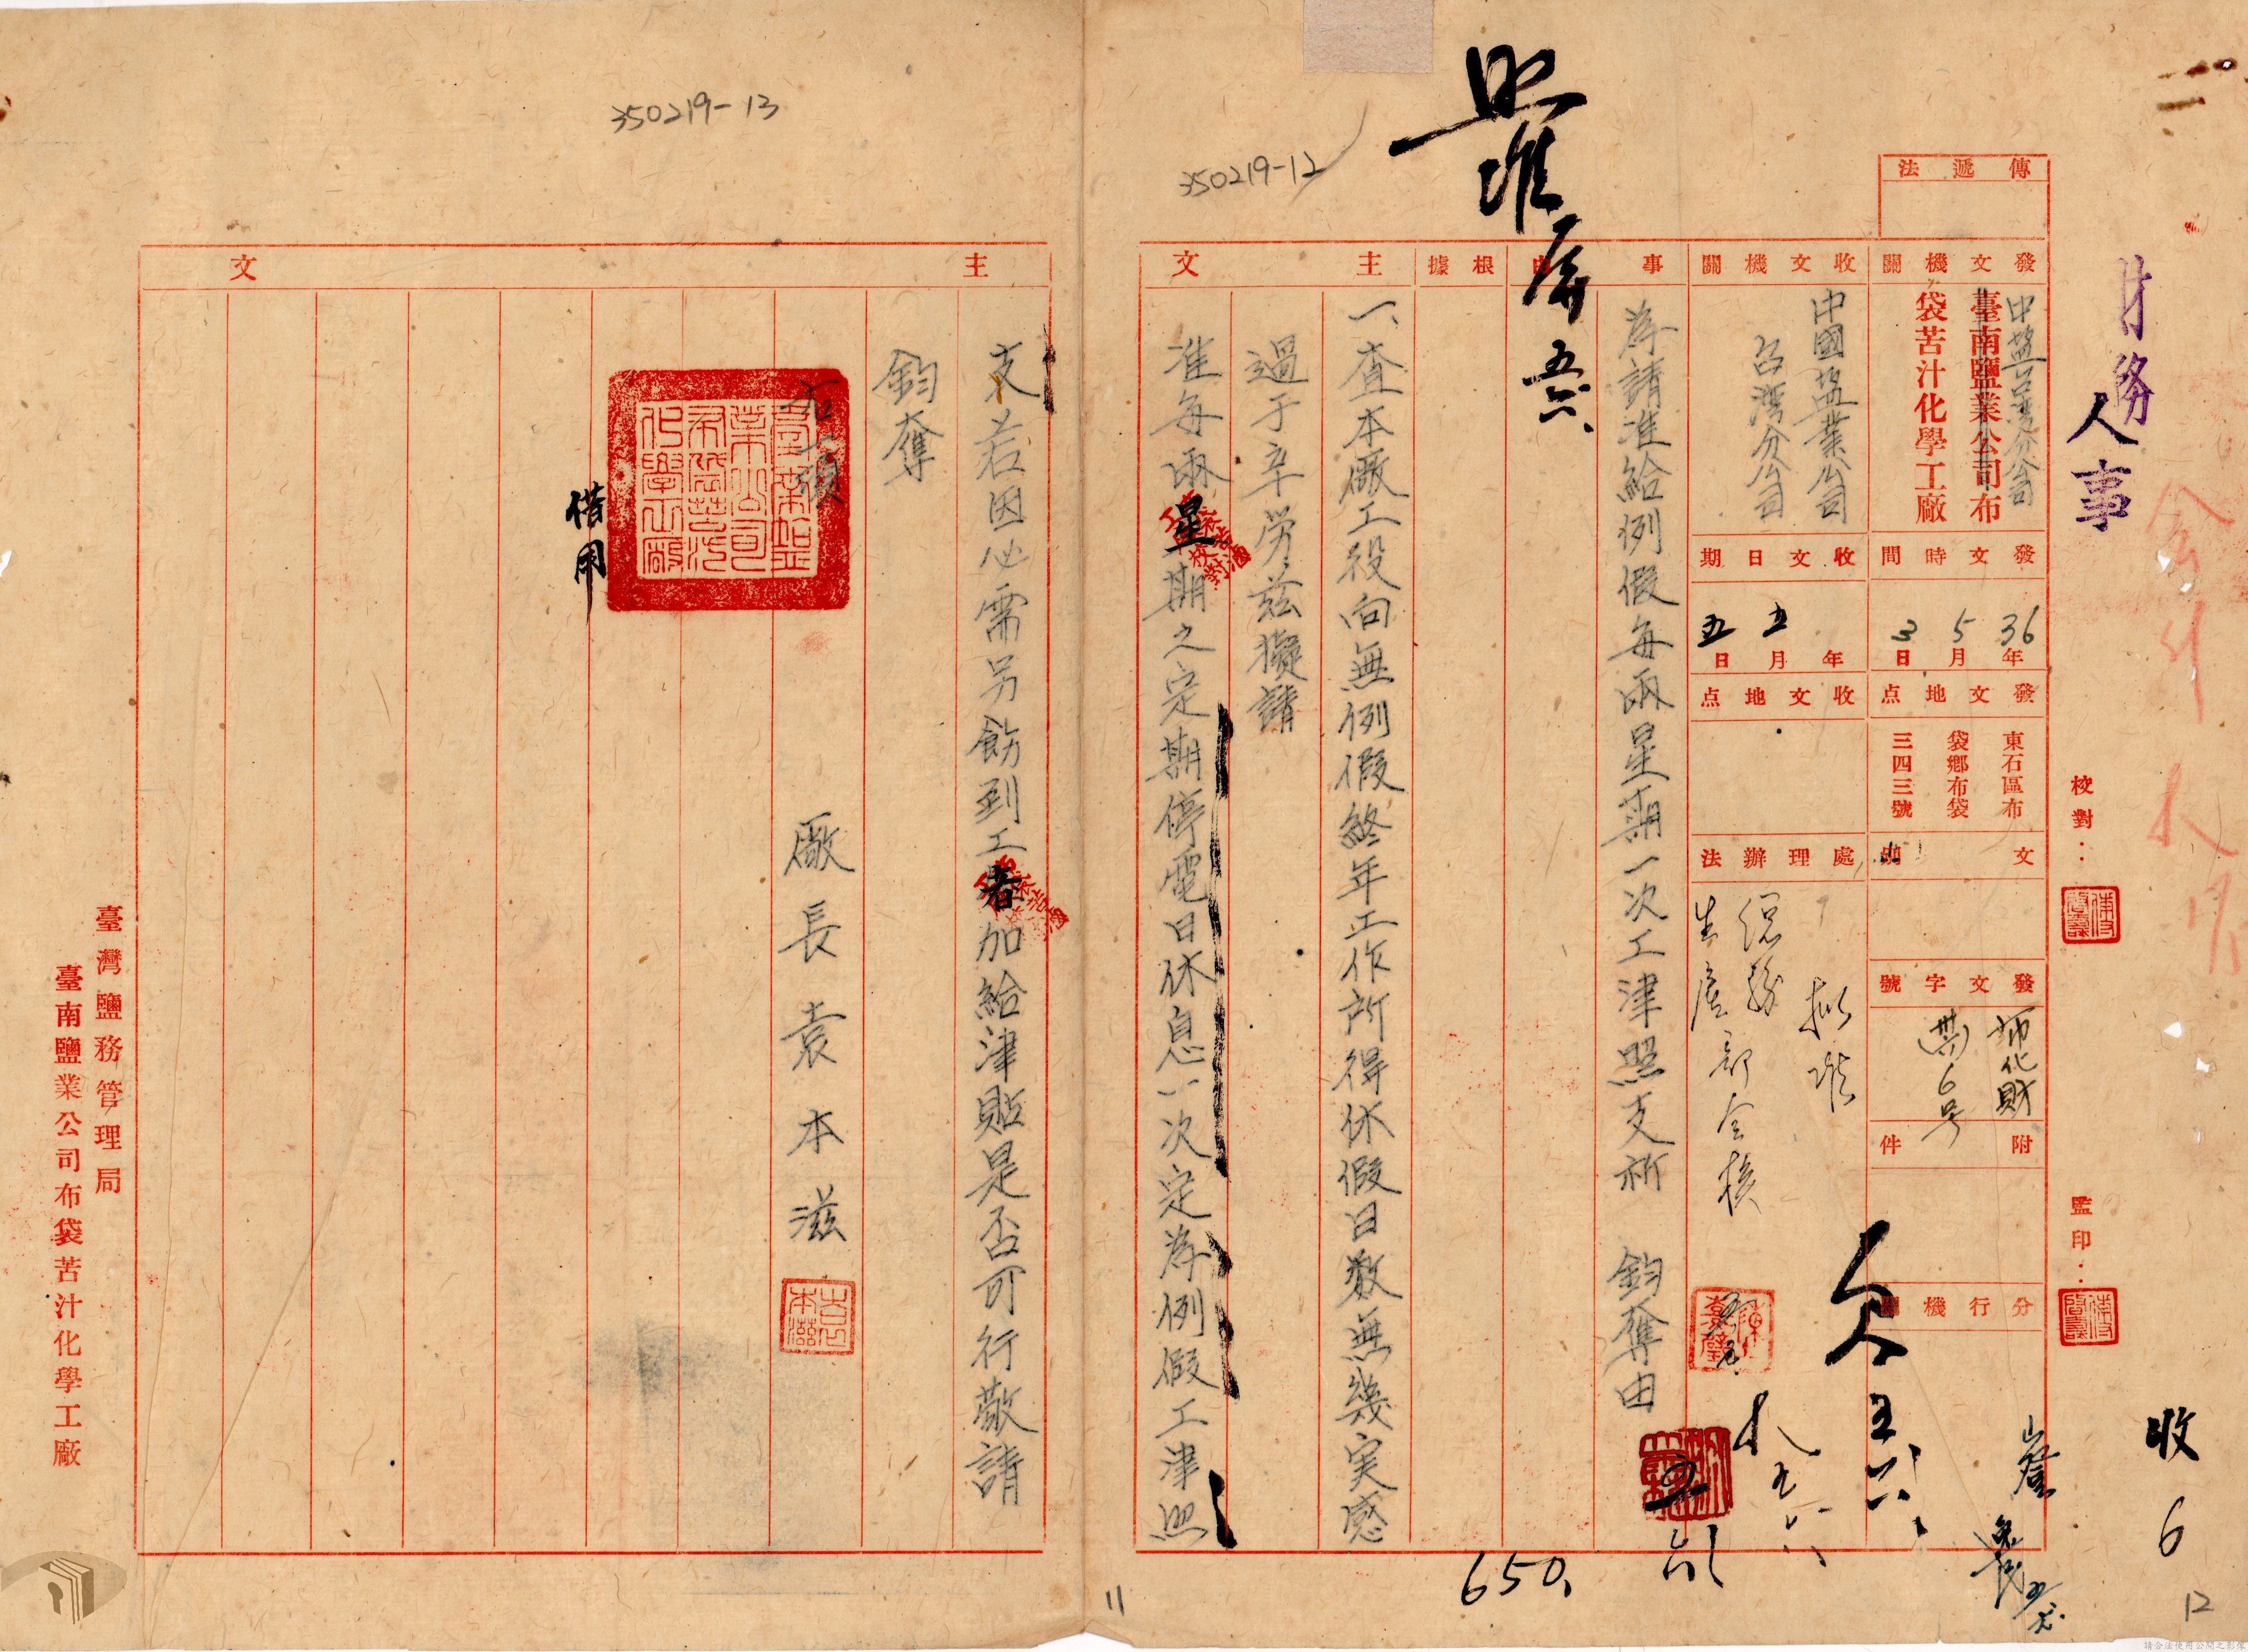 350219-13
350219-12
照准
五六
財務
人事
傳遞法
發文機關
中鹽台灣分公司
臺南鹽業公司布
袋苦汁化學工廠
收文機關
中國盐業公司
台灣分公司
發文時間
36年5月3日
收文日期
年五月五日
發文地点
東石區布
袋鄉布袋
三四三號
收文地点
文
處理辦法
拟准
總務
生產部会核
發文字號
布化財
(卅六)6号
附件
分行機關
校對：
監印：
事由
為請准給例假每兩星期一次工津照支祈 鈞奪由
根據
主文
一、查本廠工役向無例假終年工作所得休假日数無幾实感
過于辛勞兹擬請
准每兩星期之定期停電日休息一次定為例假工津照
五六
收6
650
11
12
主文
支若因必需另飭到工者加給津貼是否可行敬請
鈞奪
臺南鹽業公司布袋苦汁化學工廠
借用
廠長袁本滋
臺灣鹽務管理局
臺南鹽業公司布袋苦汁化學工廠
請合法使用公開之影像